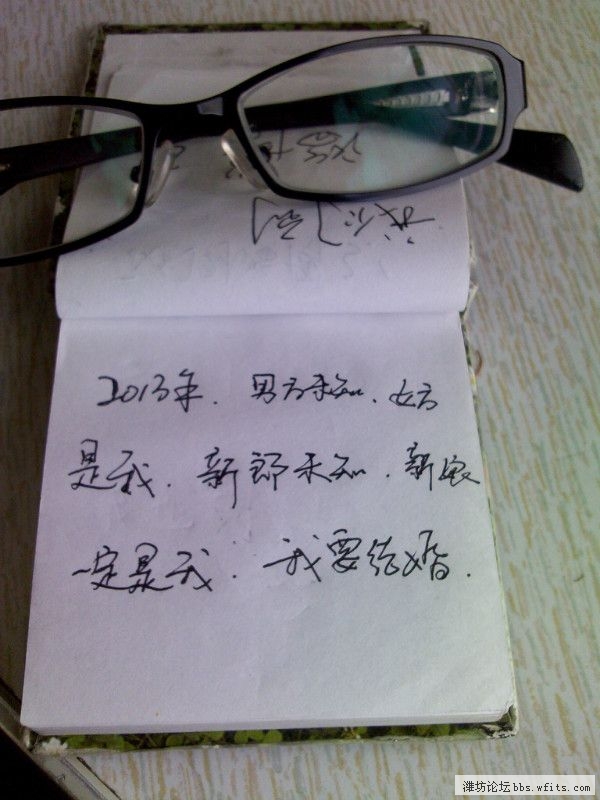 我们到
2013年.男方未知.女方
是我.新郎未知.新娘
一定是我.我要结婚.
潍坊论坛bbs.wfits.com